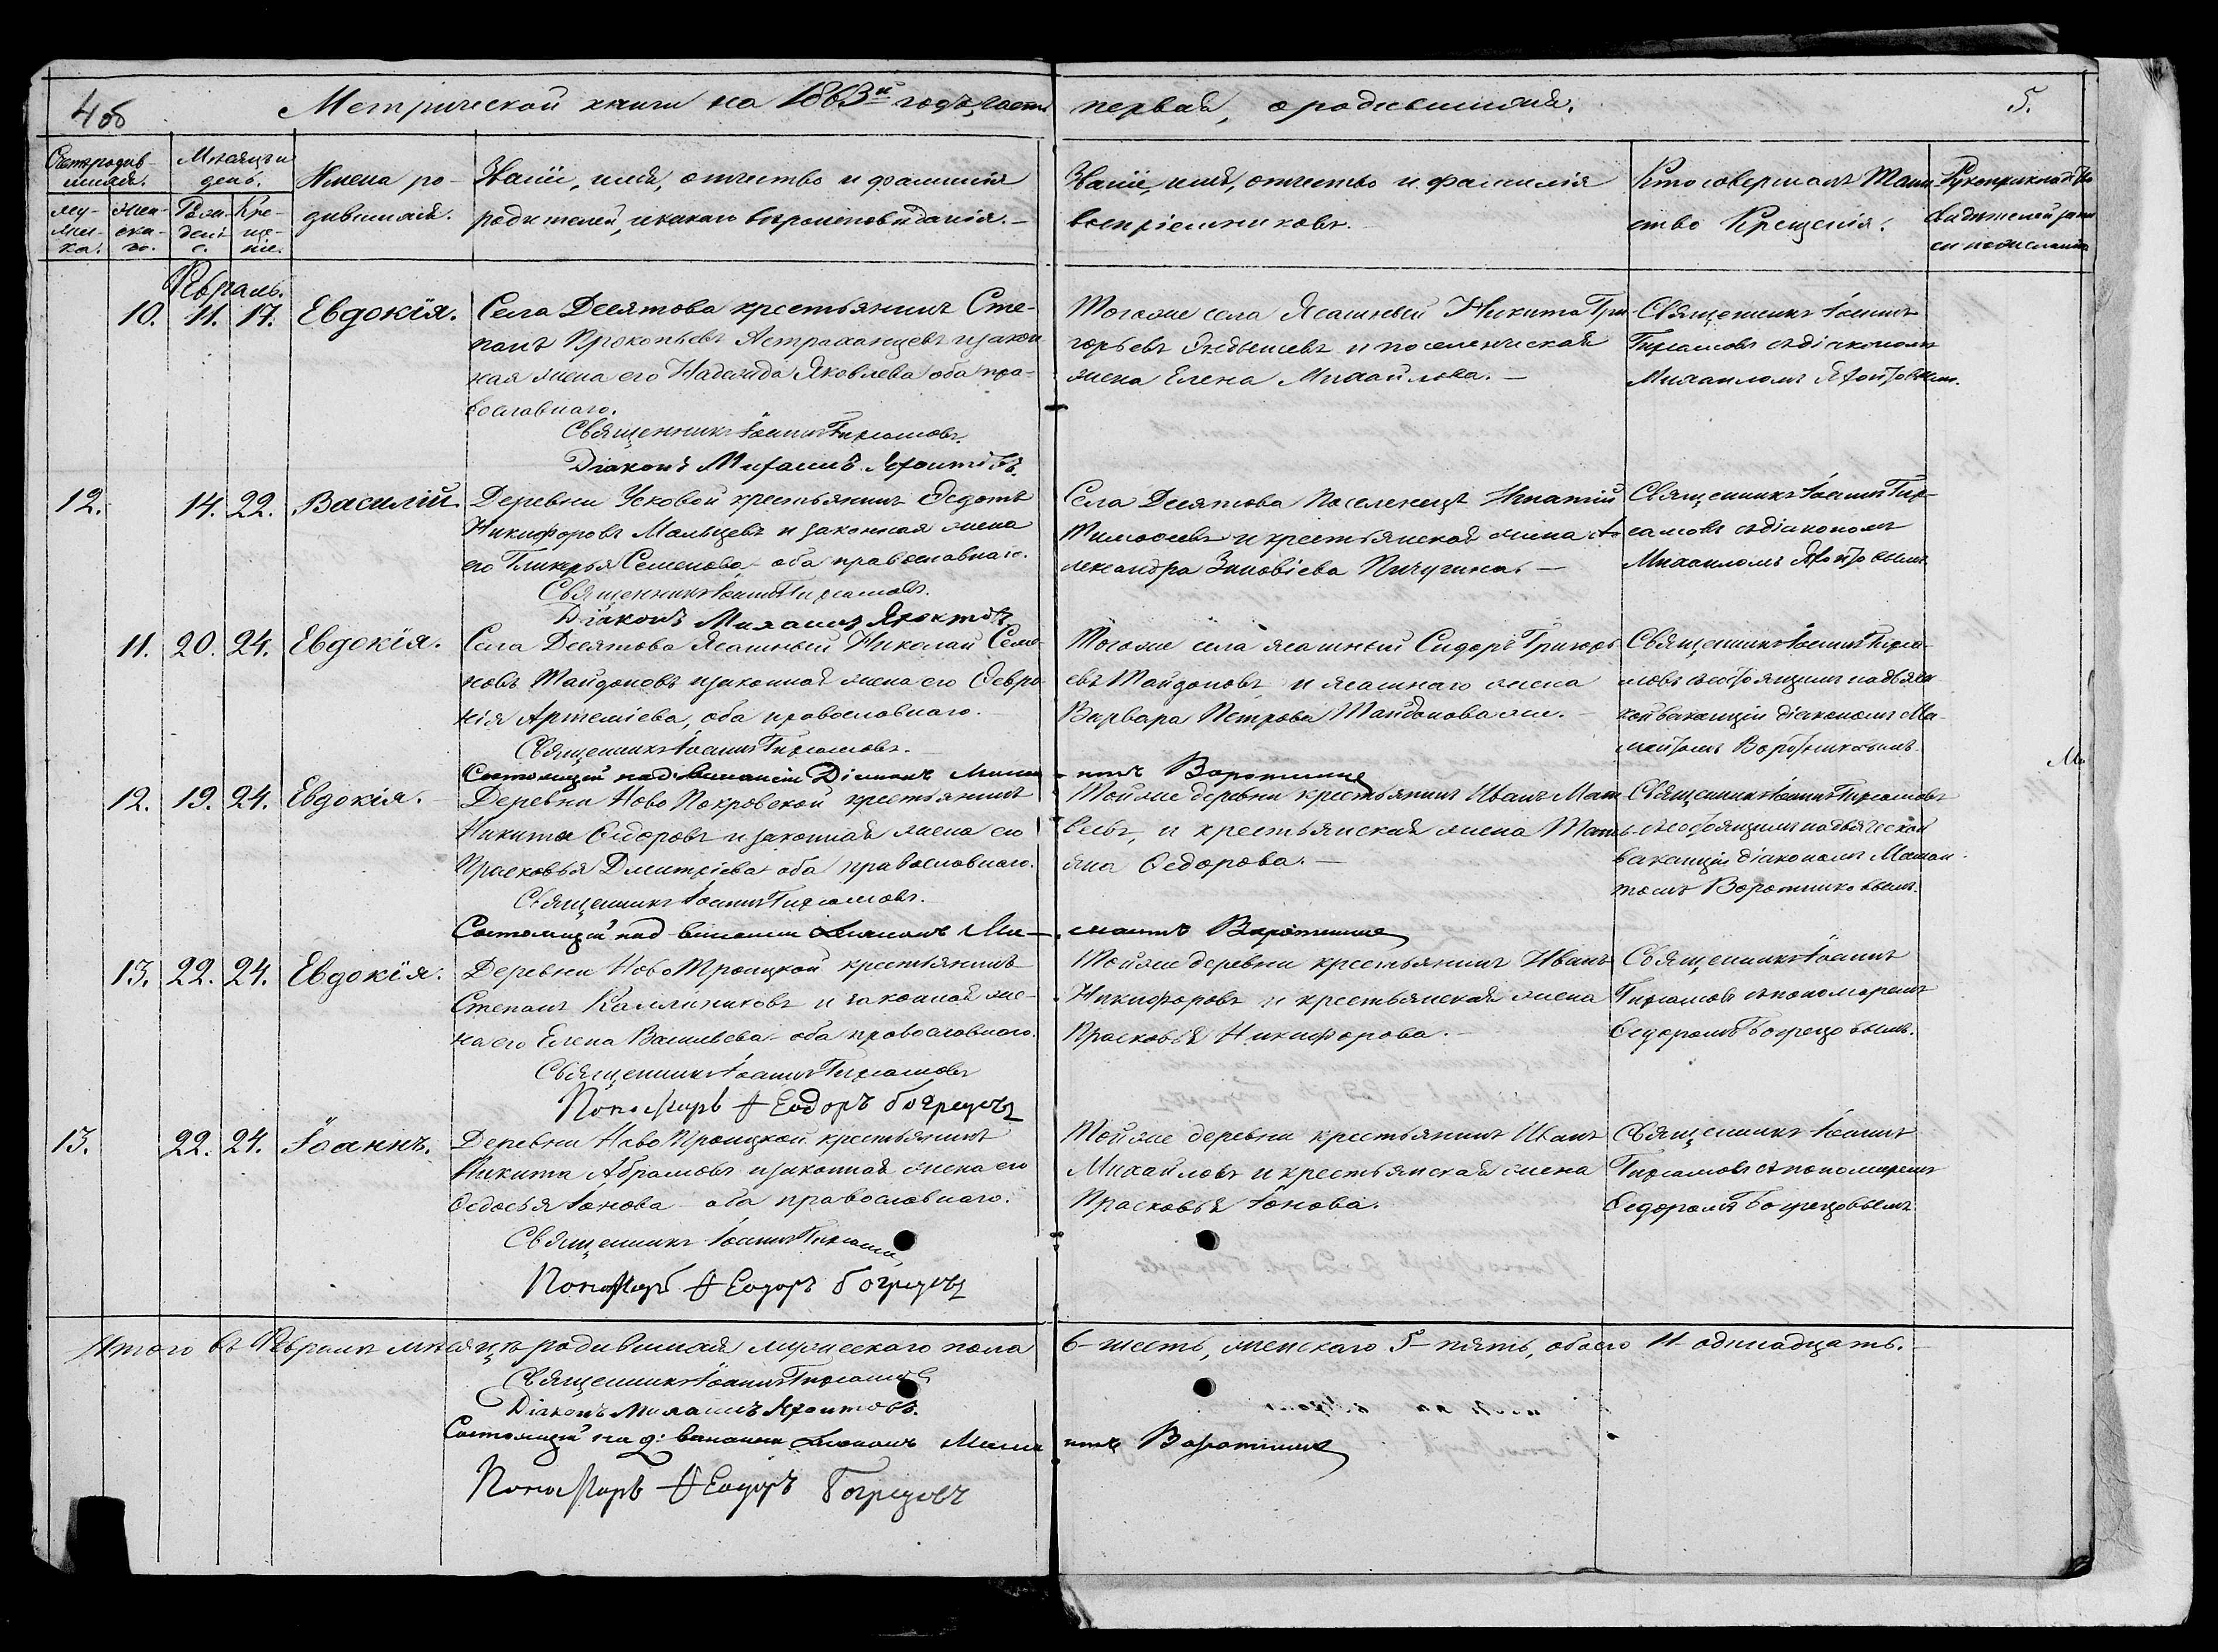 4 об
Метрической книги на 1863й годъ, часть первая, о родившихся.
5.
Счетъ родив-
шихся.
му-
жес-
ка.
жен-
ска-
го.
Мѣсяцъ и
день.
Рож-
дені-
е.
Кре-
ще-
ніе.
Имена ро-
дившихся.
Званіе, имя, отчество и фамилія
родителей, и какого вѣроисповѣданія. —
Званіе, имя, отчество и фамилія
воспріемниковъ.
Кто совершалъ Таин-
ство Крещенія.
Рукоприкладство
свидѣтелей
Февраль.
10. 11. 17. Евдокія.
Села Десятова крестьянинъ Сте-
панъ Прокопьевъ Астраханцевъ и закон
ная жена его Надежда Яковлева оба пра-
вославнаго.
Священникъ Іоаннъ
Діаконъ Михаилъ
Тогоже села Ясашный Никита Гри-
горьевъ и поселенческая
жена Елена Михайлова. —
Священникъ Іоаннъ
съ діакономъ
Михаиломъ
12. 14. 22. Василій.
Деревни Усковой крестьянинъ Ѳедотъ
Никифоровъ Мальцевъ и законная жена
его Гликерья Семенова оба православнаго.
Священникъ Іоаннъ
Діаконъ Михаилъ
Села Десятова Поселенецъ Игнатій
Тимофеевъ и крестьянская жена А-
лександра Зиновіева Пичугина. —
Священникъ Іоаннъ
съ діакономъ
Михаиломъ
11. 20. 24. Евдокія.
Села Десятова Ясашный Николай Семе
новъ Тайдоновъ и законная жена его Февро
нія Артеміева, оба православнаго.
Священникъ Іоаннъ
Состоящій на дьяч. вакансіи Діаконъ Мамантъ
Тогоже села ясашный Сидоръ Григорь
евъ Тайдоновъ и ясашнаго жена
Варвара Петрова Тайдонова же. —
Священникъ Іоаннъ
съ состоящимъ на дьячес
кой вакансіи діакономъ Ма-
мантомъ Воротниковымъ.
12. 19. 24. Евдокія.
Деревни Ново Покровской крестьянинъ
Никита Ѳедоровъ и законная жена его
Прасковья Дмитріева оба православнаго.
Священникъ Іоаннъ
Состоящій на дьяч. вакансіи Діаконъ Ма- мантъ
Тойже деревни крестьянинъ Иванъ Мат
веевъ, и крестьянская жена Тать-
яна Ѳедорова. —
Священникъ Іоаннъ
съ состоящимъ на дьяческой
вакансіи діакономъ Маман-
томъ Воротниковымъ.
13. 22. 24. Евдокія.
Деревни Ново Троицкой крестьянинъ
Степанъ Каллиниковъ и законная же-
на его Елена Васильева оба православнаго.
Священникъ Іоаннъ
Пономарь Ѳеодоръ
Тойже деревни крестьянинъ Иванъ
Никифоровъ и крестьянская жена
Прасковья Никифорова. —
Священникъ Іоаннъ
съ пономаремъ
Ѳедоромъ
13. 22. 24. Іоаннъ.
Деревни Ново Троицкой крестьянинъ
Никита Абрамовъ и законная жена его
Ѳедосья Іонова оба православнаго.
Священникъ Іоаннъ
Пономарь Ѳеодоръ
Тойже деревни крестьянинъ Иванъ
Михайловъ и крестьянская жена
Прасковья Іонова.
Священникъ Іоаннъ
съ пономаремъ
Ѳедоромъ
Итого въ Февралѣ мѣсяцѣ родившихся мужескаго пола 6 – шесть, женскаго 5 – пять, обоего 11 – одинадцать. —
Священникъ Іоаннъ
Діаконъ Михаилъ
Состоящій на д: вакансіи Діаконъ Мамантъ
Пономарь Ѳеодоръ